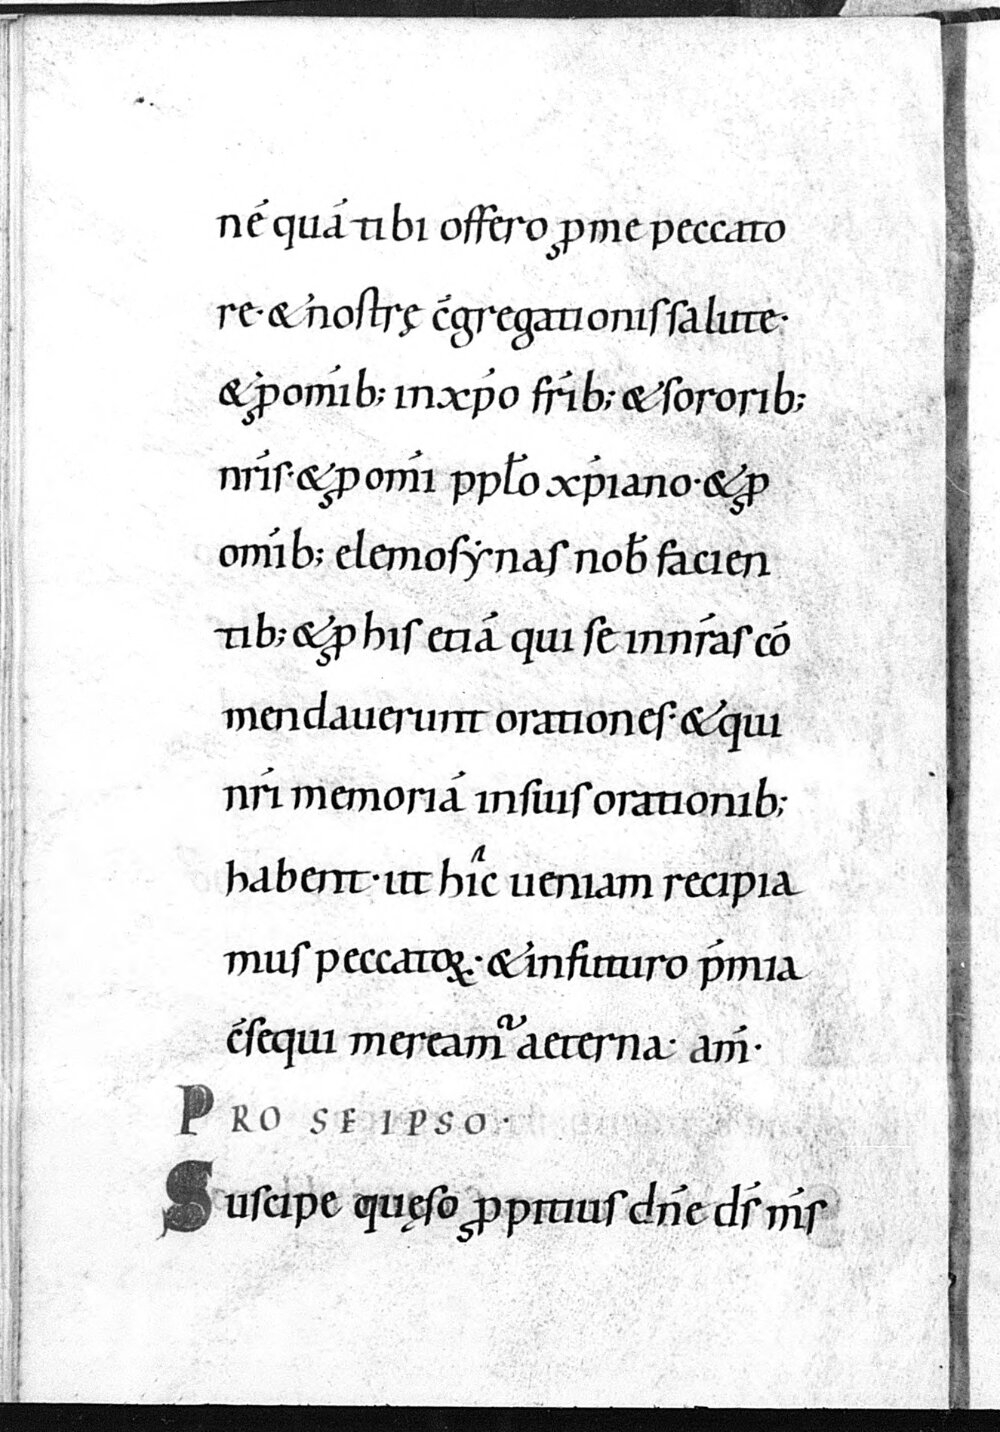 né quā tibi offero ꝓ me peccato
re· & nostrę c̄gregationis salute·
& ꝓ om̄ib; in xp̄o fr̄ib; & sororib;
nr̄is· & ꝓ om̄i ppl̄o xp̄iano· & ꝓ
om̄ib; elemosẏnas nob̄ facien
tib; & ꝓ his etiā qui se in nr̄as cō
mendauerunt orationes· & qui
nr̄i memoriā in suis orationib;
habent· ut hic ueniam recipia
mus peccatoꝝ· & in futuro p̄mia
c̄sequi mereamur aeterna· am̄·
PRO SE IPSO·
Suscipe quęso ꝓpitius dn̄e ds̄ m̄s